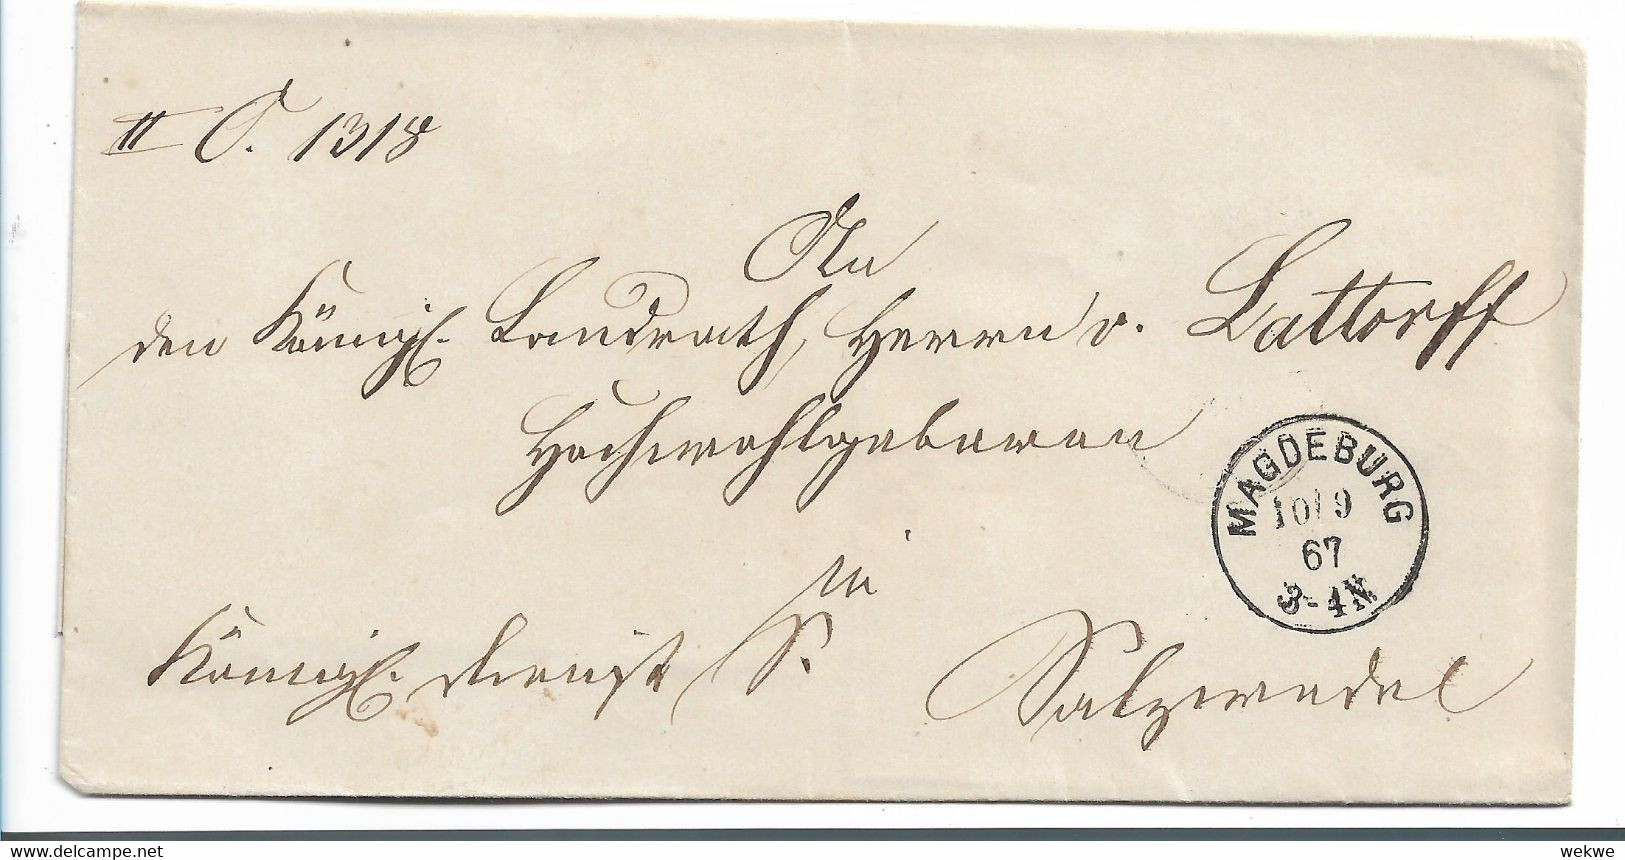 II O. 1318
An
den Königl. Landrath, Herrn v. Lattorff
Hochwohlgeboren
in
Königl. Dienst S. Salzwedel
MAGDEBURG
10 9
67
3-4N
delcampe.net
wekwe